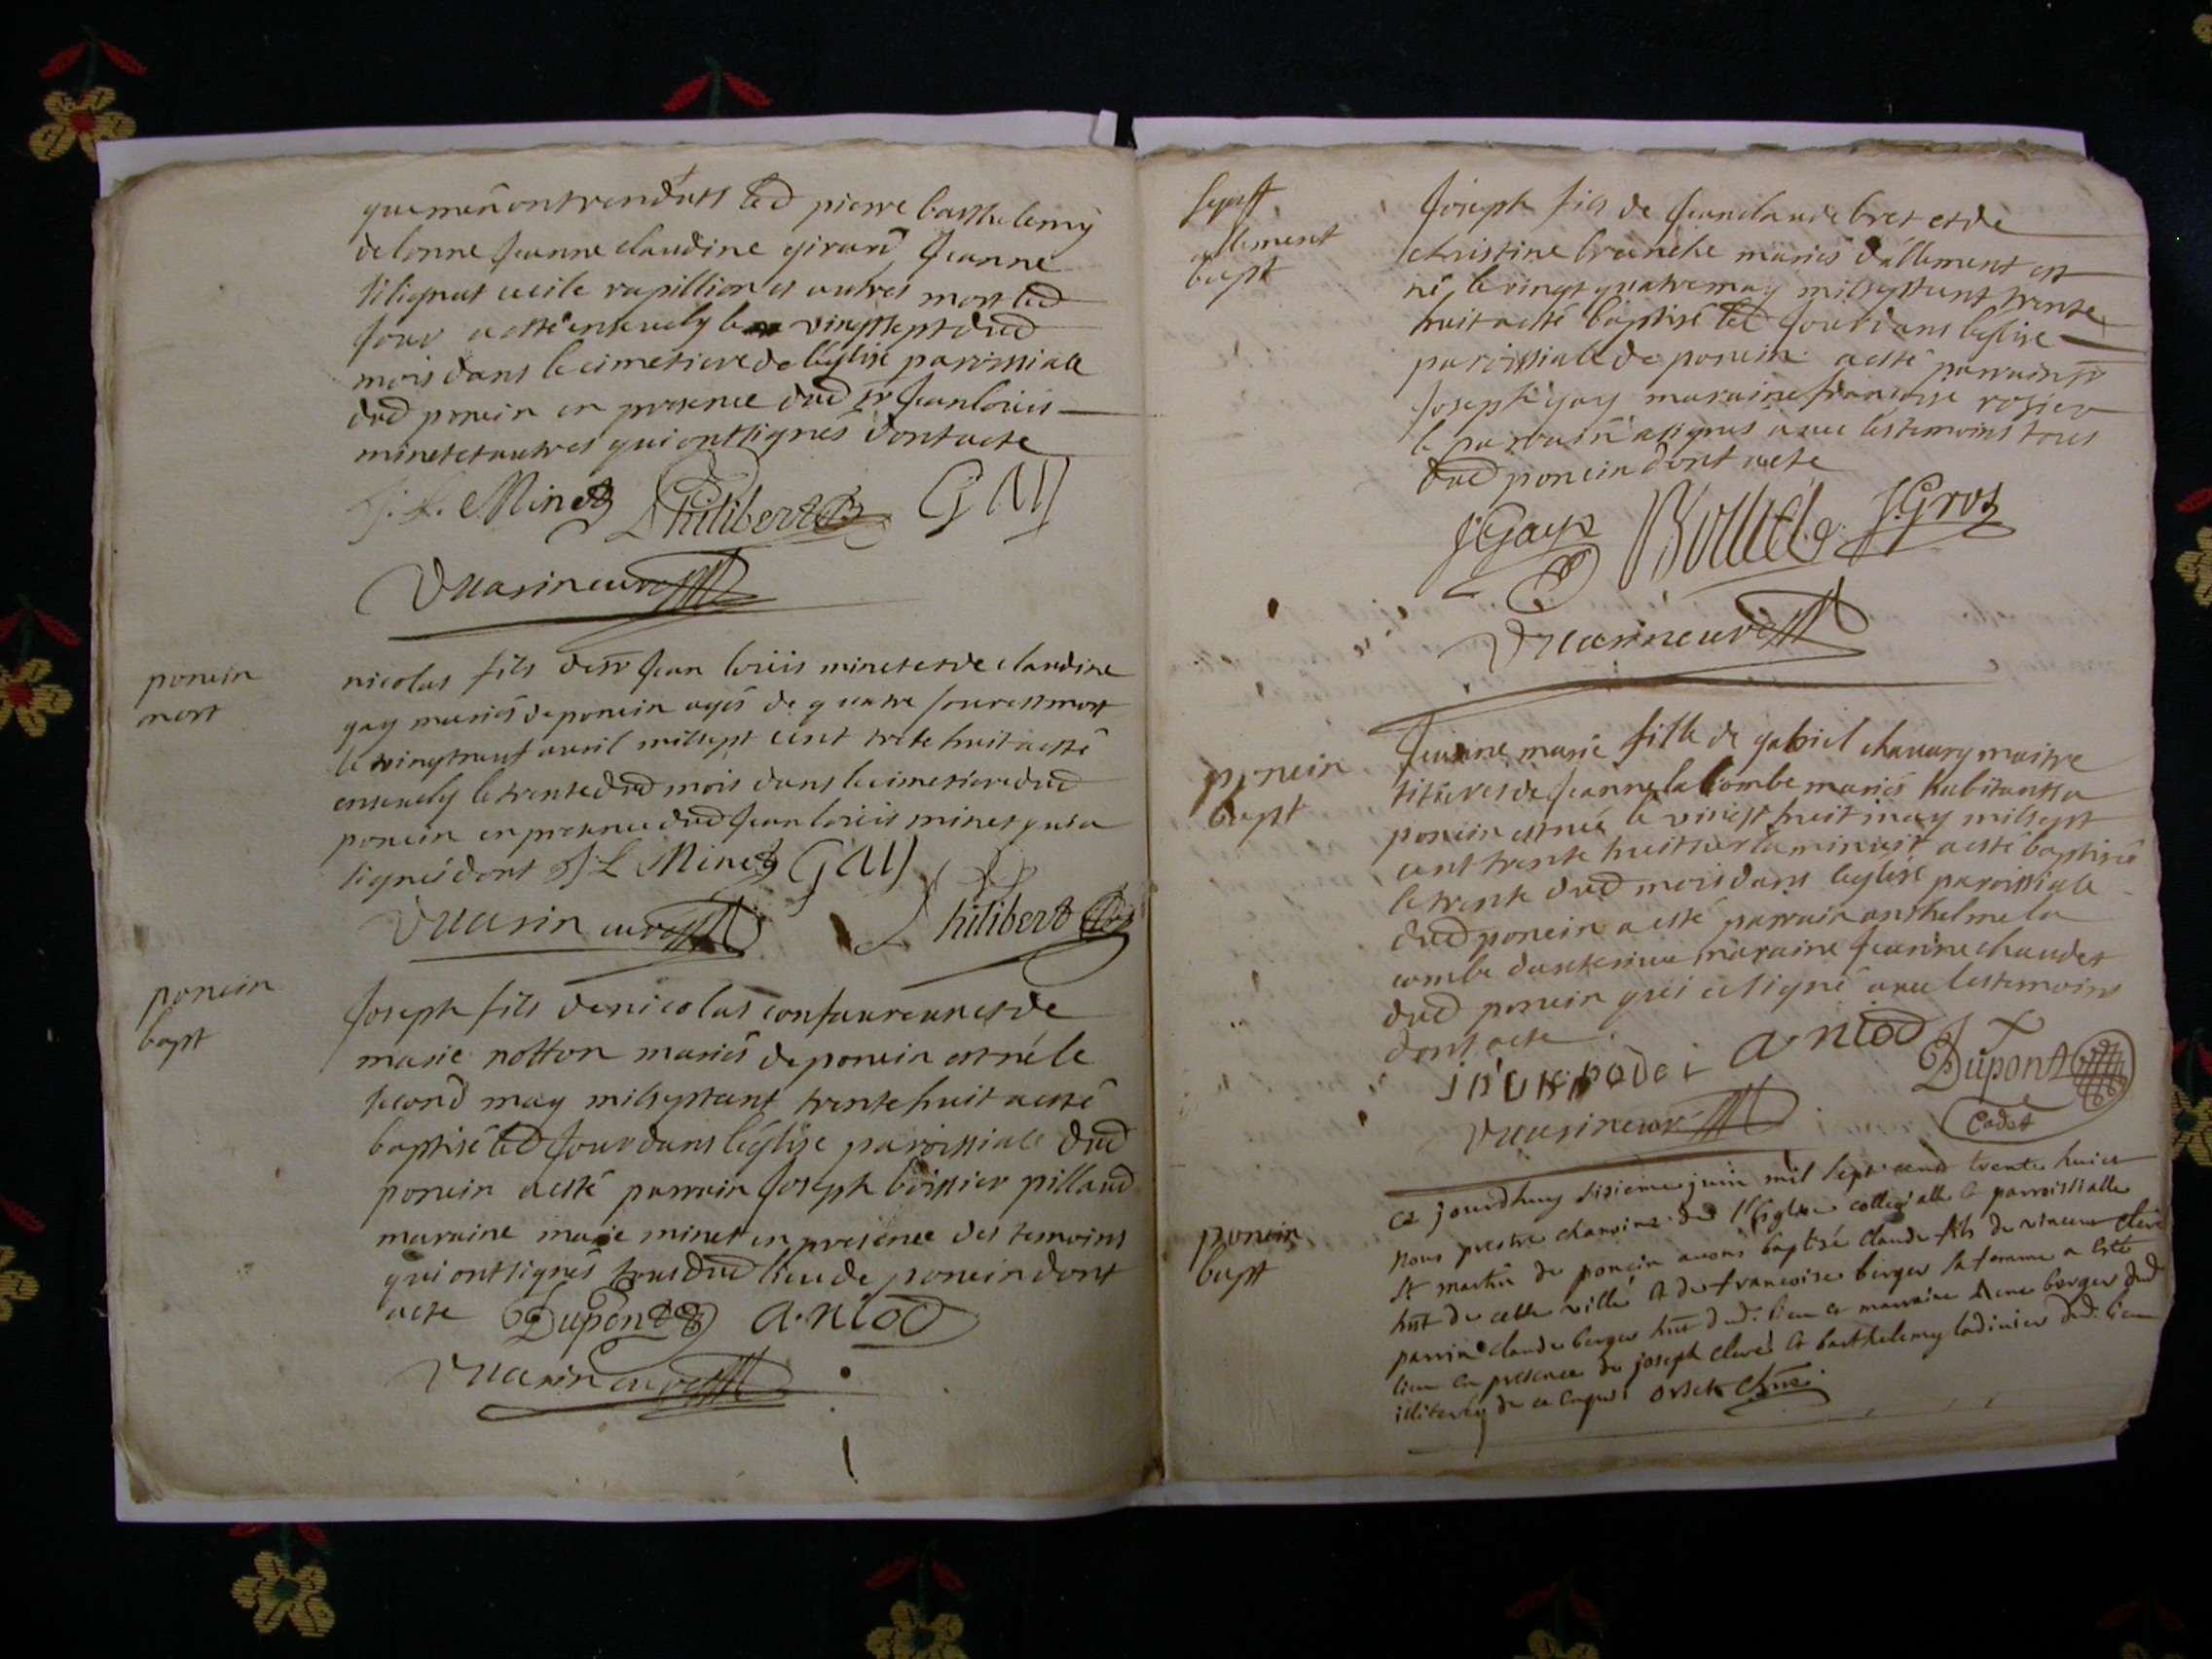 pierre barthelemy
delonne Jeanne claudine girard Jeanne
cecile rapillion et autres mort led
Jour a esté ensevely le vingtsept dud
mois dans le cimetiere de léglise paroissiale
dud poncin en presence dud sr Jean loüis
minet et autres qui ont signés dont acte
J. L. Minet Philibert GAY
Vuarin curé
poncin
mort
nicolas fils de sr Jean loüis minet et de claudine
gay mariés de poncin agé de quatre Jour est mort
le vingtneuf avril milsept cent trete huit a esté
ensevely le trente dud mois dans le cimetiere dud
poncin en presence dud Jean loüis minet qui a
signé dont J L Minet GAY
Vuarin curé Philibert
poncin
bapt
Joseph fils de nicolas et de
marie notton mariés de poncin est né le
second may milseptcent trente huit a esté
baptisé led Jour dans léglise paroissiale dud
poncin a esté parrain Joseph boissier pilland
maraine marie minet en presence des temoins
qui ont signés tous dud lieu de poncin dont
acte Dupont A. niod
Vuarin curé
allement
bapt
Joseph fils de Jean claude bret et de
christine branche mariés dállement est
né le vingt quatre may milseptcent trente
huit a esté baptisé led Jour dans léglise
paroissiale de poncin a esté parrain sr
Joseph gay maraine francoise rosier
le parrain a signés avec les temoins tous
dud poncin dont acte
J Gay J. Groz
Vuarin curé
poncin
bapt
Jeanne marie fille de gabriel chavary maitre
et de Jeanne lacombe mariés habitants a
poncin est née le vingt huit may milsept
cent trente huit sur la minuit a esté baptisée
le trente dud mois dans leglise paroissiale
dud poncin a esté parrain anthelme la
combe maraine Jeanne chaudet
dud poncin qui a signé avec les temoins
dont acte
A. niod Dupont
Cadet
Vuarin curé
poncin
bapt
ce jourdhuy sixieme juin mil sept cent trente huict
nous prestre chanoine de l'Eglise collegialle et parroissialle
St martin de poncin avons baptisé claude fils de vincent cleré
hnt de cette ville et de francoise berger sa femme a esté
parrin claude berger hnt dud. lieu et marraine berger dud
lieu en presence de joseph cleré et barthelemy ladinier dud. lieu
illiterés de ce enquis orset chne.